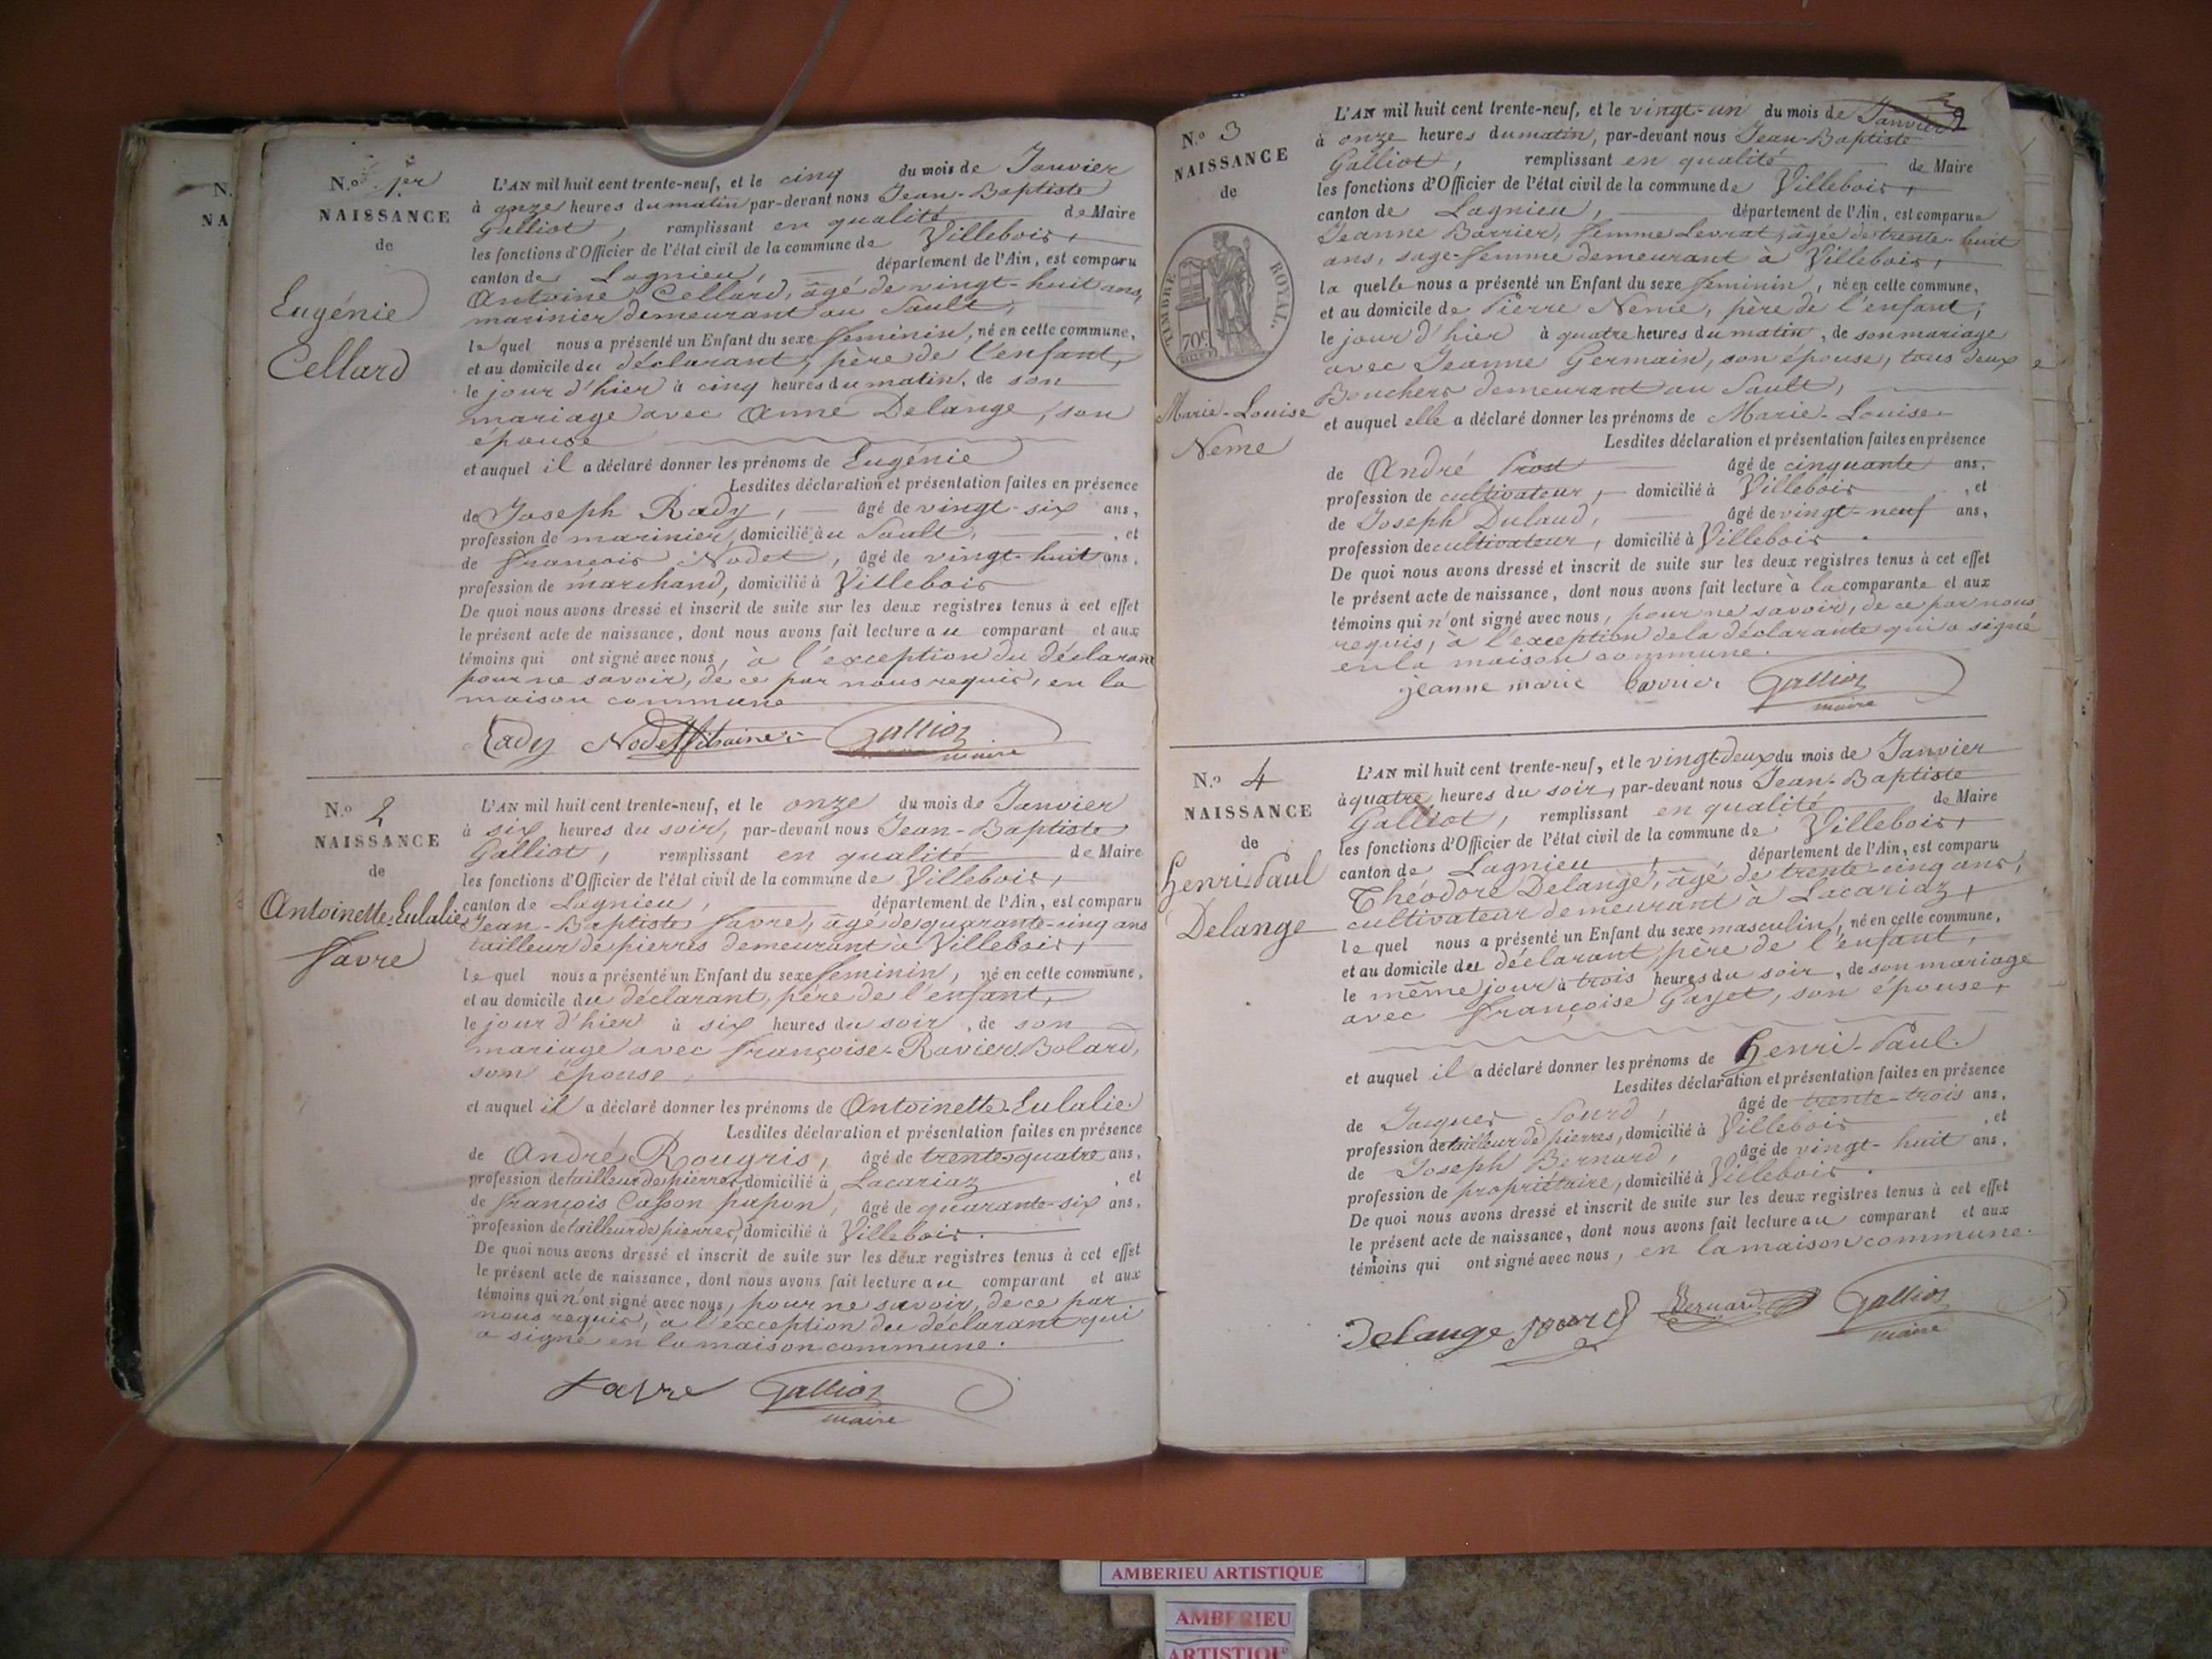 N.
NA
N.º 1er
NAISSANCE
de
Eugénie
Cellard
L'AN mil huit cent trente-neuf, et le cinq du mois de Janvier
à onze heures du matin par-devant nous Jean-Baptiste
Galliot, remplissant en qualité de Maire
les fonctions d'Officier de l'état civil de la commune de Villebois,
canton de Lagnieu, département de l'Ain, est comparu
Antoine Cellard, âgé de vingt-huit ans,
marinier demeurant au Sault,
lequel nous a présenté un Enfant du sexe féminin, né en cette commune,
et au domicile du déclarant, père de l'enfant,
le jour d'hier à cinq heures du matin, de son
mariage avec Anne Delange, son
épouse
et auquel il a déclaré donner les prénoms de Eugénie
Lesdites déclaration et présentation faites en présence
de Joseph Rady, âgé de vingt-six ans,
profession de marinier, domicilié au Sault, , et
de François Nodet, âgé de vingt-huit ans,
profession de marchand, domicilié à Villebois
De quoi nous avons dressé et inscrit de suite sur les deux registres tenus à cet effet
le présent acte de naissance, dont nous avons fait lecture au comparant et aux
témoins qui ont signé avec nous, à l'exception du déclarant
pour ne savoir, de ce par nous requis, en la
maison commune
Rady Nodet Galliot
maire
N.º 2
NAISSANCE
de
Antoinette-Eulalie
Favre
L'AN mil huit cent trente-neuf, et le onze du mois de Janvier
à six heures du soir, par-devant nous Jean-Baptiste
Galliot, remplissant en qualité de Maire
les fonctions d'Officier de l'état civil de la commune de Villebois,
canton de Lagnieu, département de l'Ain, est comparu
Jean-Baptiste Favre, âgé de quarante-cinq ans
tailleur de pierres demeurant à Villebois,
lequel nous a présenté un Enfant du sexe féminin, né en cette commune,
et au domicile du déclarant, père de l'enfant,
le jour d'hier à six heures du soir, de son
mariage avec Françoise Ravier Bolard,
son épouse
et auquel il a déclaré donner les prénoms de Antoinette-Eulalie.
Lesdites déclaration et présentation faites en présence
de André Rougris, âgé de trente-quatre ans,
profession de tailleur de pierres domicilié à Lacariaz , et
de François Casson papon, âgé de quarante-six ans,
profession de tailleur de pierres, domicilié à Villebois.
De quoi nous avons dressé et inscrit de suite sur les deux registres tenus à cet effet
le présent acte de naissance, dont nous avons fait lecture au comparant et aux
témoins qui n'ont signé avec nous, pour ne savoir, de ce par
nous requis, à l'exception du déclarant qui
a signé en la maison commune.
Favre Galliot
maire
N.º 3
NAISSANCE
de
TIMBRE ROYAL.
70c
Marie-Louise
Neme
L'AN mil huit cent trente-neuf, et le vingt-un du mois de Janvier
à onze heures du matin, par-devant nous Jean-Baptiste
Galliot, remplissant en qualité de Maire
les fonctions d'Officier de l'état civil de la commune de Villebois,
canton de Lagnieu, département de l'Ain, est comparue
Jeanne Barrier, femme Levrat, âgée de trente-huit
ans, sage-femme demeurant à Villebois,
laquelle nous a présenté un Enfant du sexe féminin, né en cette commune,
et au domicile de Pierre Neme, père de l'enfant,
le jour d'hier à quatre heures du matin, de son mariage
avec Jeanne Germain, son épouse, tous deux
Bouchers demeurant au Sault,
et auquel elle a déclaré donner les prénoms de Marie-Louise
Lesdites déclaration et présentation faites en présence
de André Prost âgé de cinquante ans,
profession de cultivateur, domicilié à Villebois , et
de Joseph Dulaud, âgé de vingt-neuf ans,
profession de cultivateur, domicilié à Villebois.
De quoi nous avons dressé et inscrit de suite sur les deux registres tenus à cet effet
le présent acte de naissance, dont nous avons fait lecture à la comparante et aux
témoins qui n'ont signé avec nous, pour ne savoir, de ce par nous
requis, à l'exception de la déclarante qui a signé
en la maison commune.
jeanne marie barrier Galliot
maire
N.º 4
NAISSANCE
de
Henri-Paul
Delange
L'AN mil huit cent trente-neuf, et le vingt-deux du mois de Janvier
à quatre heures du soir, par-devant nous Jean-Baptiste
Galliot, remplissant en qualité de Maire
les fonctions d'Officier de l'état civil de la commune de Villebois,
canton de Lagnieu, département de l'Ain, est comparu
Théodore Delange, âgé de trente-cinq ans,
cultivateur demeurant à Lacariaz,
lequel nous a présenté un Enfant du sexe masculin, né en cette commune,
et au domicile du déclarant, père de l'enfant,
le même jour à trois heures du soir, de son mariage
avec Françoise Gayet, son épouse,
et auquel il a déclaré donner les prénoms de Henri-Paul.
Lesdites déclaration et présentation faites en présence
de Jacques Sourd, âgé de trente-trois ans,
profession de tailleur de pierres, domicilié à Villebois , et
de Joseph Bernard, âgé de vingt-huit ans,
profession de propriétaire, domicilié à Villebois.
De quoi nous avons dressé et inscrit de suite sur les deux registres tenus à cet effet
le présent acte de naissance, dont nous avons fait lecture au comparant et aux
témoins qui ont signé avec nous, en la maison commune.
Delange Sourd Bernard Galliot
maire
AMBERIEU ARTISTIQUE
AMBERIEU
ARTISTIQU